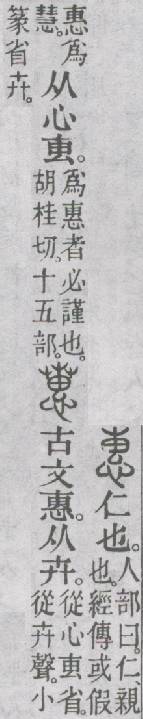 惠仁也。人部曰。仁、親也。經傳或假
惠爲慧。从心叀。爲惠者必謹也。胡桂切。十五部。古文惠。从卉。從心叀省。從卉聲。小
篆省卉。